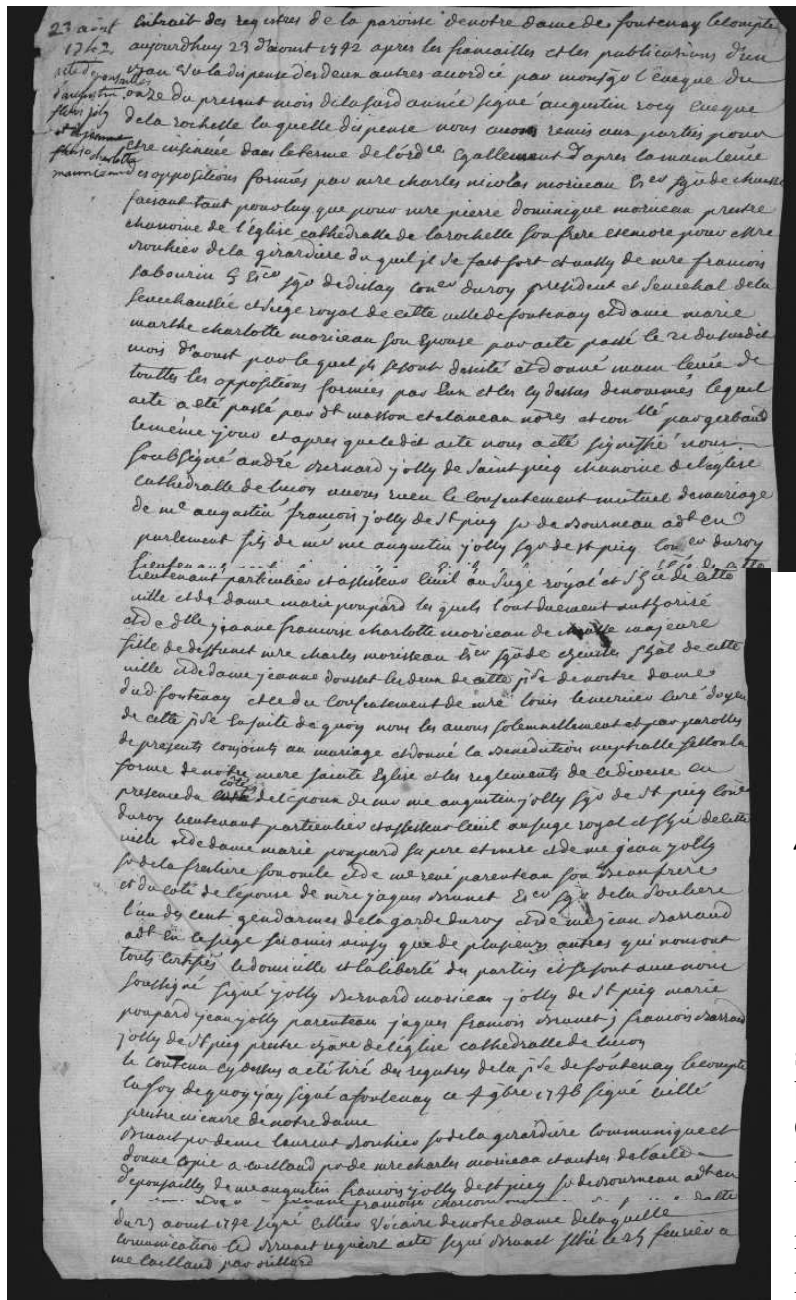 23 aoust
1742
acte d'epousailles
d'augustin
jolly
et de jeanne
charlotte
extrait des registres de la paroisse de notre dame de fontenay lecompte
aujourdhuy 23 d'aoust 1742 apres les fiancailles et les publications d'un
ban et la dispense des deux autres accordée par monsgr l'eveque du
onze du present mois de la susd année signé augustin rocq eveque
de la rochelle la quelle dispense nous avons remis aux parties pour
etre insinuée dans le terme de l'ordce egallement d'apres la main levée
des oppositions formées par mre charles nicolas moriceau escr sgr de
faisant tant pour luy que pour mre pierre dominique moriceau prestre
chanoine de l'église cathedralle de la rochelle son frere encore pour
rouhier de la girardiere du quel il se fait fort et aussy de mre francois
sabourin escr sgr de dissay coner du roy president et senechal de la
senechaussée et siege royal de cette ville de fontenay et dame marie
marthe charlotte moriceau son epouse par acte passé le 21 du susdit
mois d'aoust par lequel ils se sont desisté et donné main levée de
touttes les oppositions formées par eux et les cy dessus denommés lequel
acte a eté passé par dt masson et nores et conllé par gerbaud
le meme jour et apres que ledit acte nous a eté signiffié nous
soubsigné andré bernard jolly de saint picq chanoine de l'église
cathedralle de lucon avons receu le consentement mutuel de mariage
de me augustin francois jolly de st picq sr de bourneau adt en
parlement fils de mre me augustin jolly sgr de st picq coner du roy
lieutenant particulier et assesseur civil au siege royal et de cette
ville et de dame marie poupard les quels l'ont duement authorisé
et de dlle jeanne francoise charlotte moriceau de majeure
fille de deffunct mre charles morisseau escr sgr de de cette
ville et de dame jeanne dousset les deux de cette psse de nostre dame
dud fontenay et ce du consentement de mre louis curé doyen
de cette psse ensuite de quoy nous les avons solemnellement et par parolles
de presents conjoints en mariage et donné la benediction nuptialle sellon la
forme de notre mere sainte eglise et les reglements de ce diocese en
presence du coté de l'epoux de mre me augustin jolly sgr de st picq coner
du roy lieutenant particulier et assesseur civil au siege royal et de cette
ville et de dame marie poupard ses pere et mere et de me jean jolly
sr de la son oncle et de me rené parenteau son beau frere
et du coté de l'epouse de mre jaques brunet escr sgr de la
l'un des cent gendarmes de la garde du roy et de me jean barraud
adt en ce siege ses amis ainsy que de plusieurs autres qui nous ont
touts certifiés le domicille et la liberté des parties et se sont avec nous
soussigné signé jolly bernard moriceau jolly de st picq marie
poupard jean jolly parenteau jaques francois brunet j francois barraud
jolly de st picq prestre chane de l'église cathedralle de lucon
le contenu cy dessus a eté tiré des registres de la psse de fontenay lecompte
en foy de quoy j'ay signé a fontenay ce 4 9bre 1746 signé
prestre vicaire de notre dame
brunet pr de me laurent rouhier sr de la girardiere communique et
donne copie a caillaud pr de mre charles moriceau et autres de l'acte
d'epousailles de me augustin francois jolly de st picq sr de bourneau adt au
jeanne francoise
du 23 aoust 1742 signé vicaire de notre dame de laquelle
communication led brunet requiert acte signé brunet le 25 fevrier a
me caillaud par